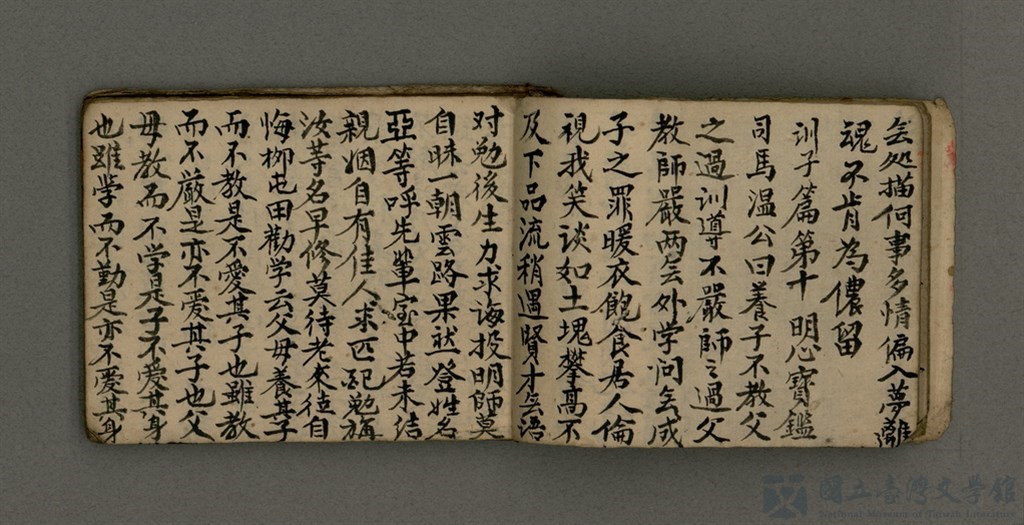 会処描何事多情偏入夢離
魂不肯為儂留
训子篇第十明心寶鑑
司馬溫公曰養子不教父
之過训導不嚴師之過父
教師嚴两会外学问会成
子之罪暖衣飽食居人倫
視我笑谈如土塊攀高不
及下品流稍遇賢才会语
对勉後生力求诲投明師莫
自昧一朝雲路果然登姓名
亞等呼先輩室中若未结
親姻自有佳人求匹配勉旃
汝等名早修莫待老来徒自
悔柳屯田勸学云父毋養其子
而不教是不愛其子也雖教
而不嚴是亦不爱其子也父
毋教而不学是子不爱其身
也雖学而不勤是亦不爱其身
國立臺灣文學館
National Museum of Taiwan Literature